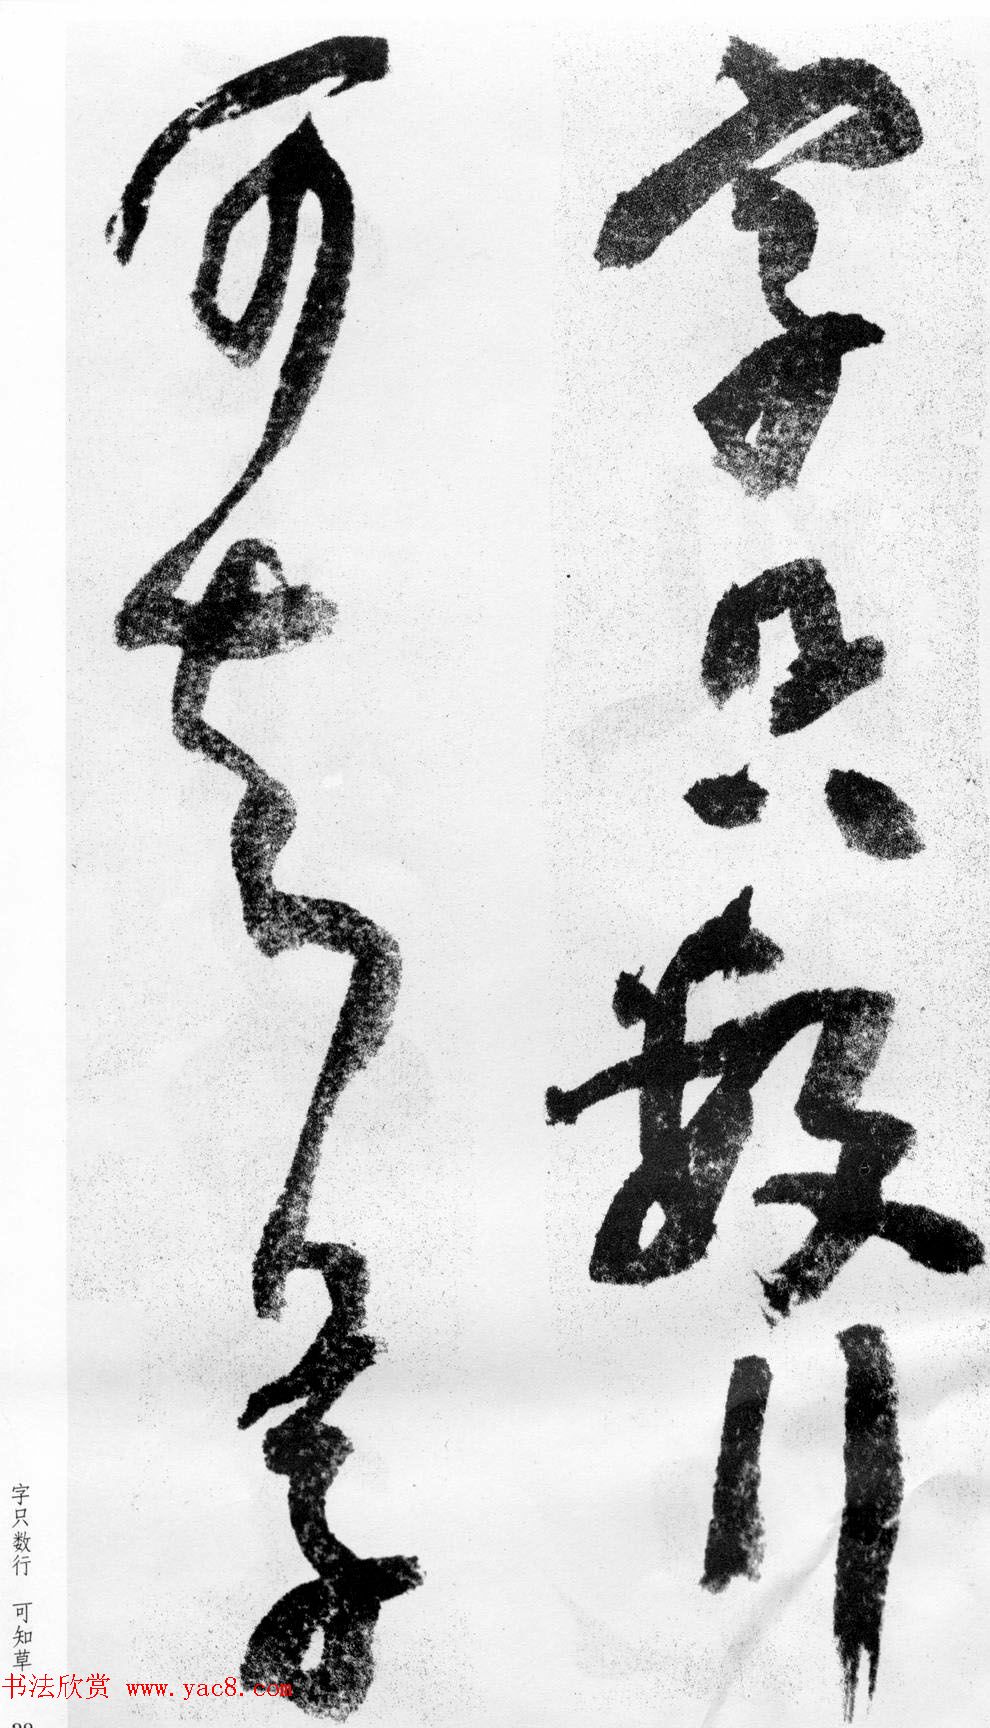 字只数行
可知草
字只数行　可知草
书法欣赏 www.yac8.com